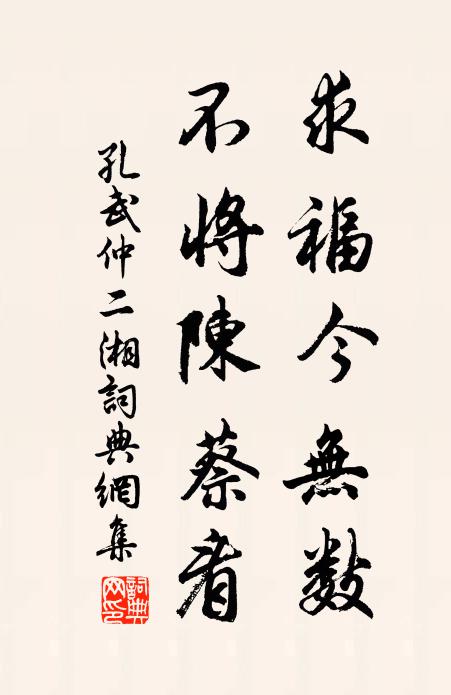 求福今無數
不將陳蔡看
孔武仲二湘詞典網集
詞典网印